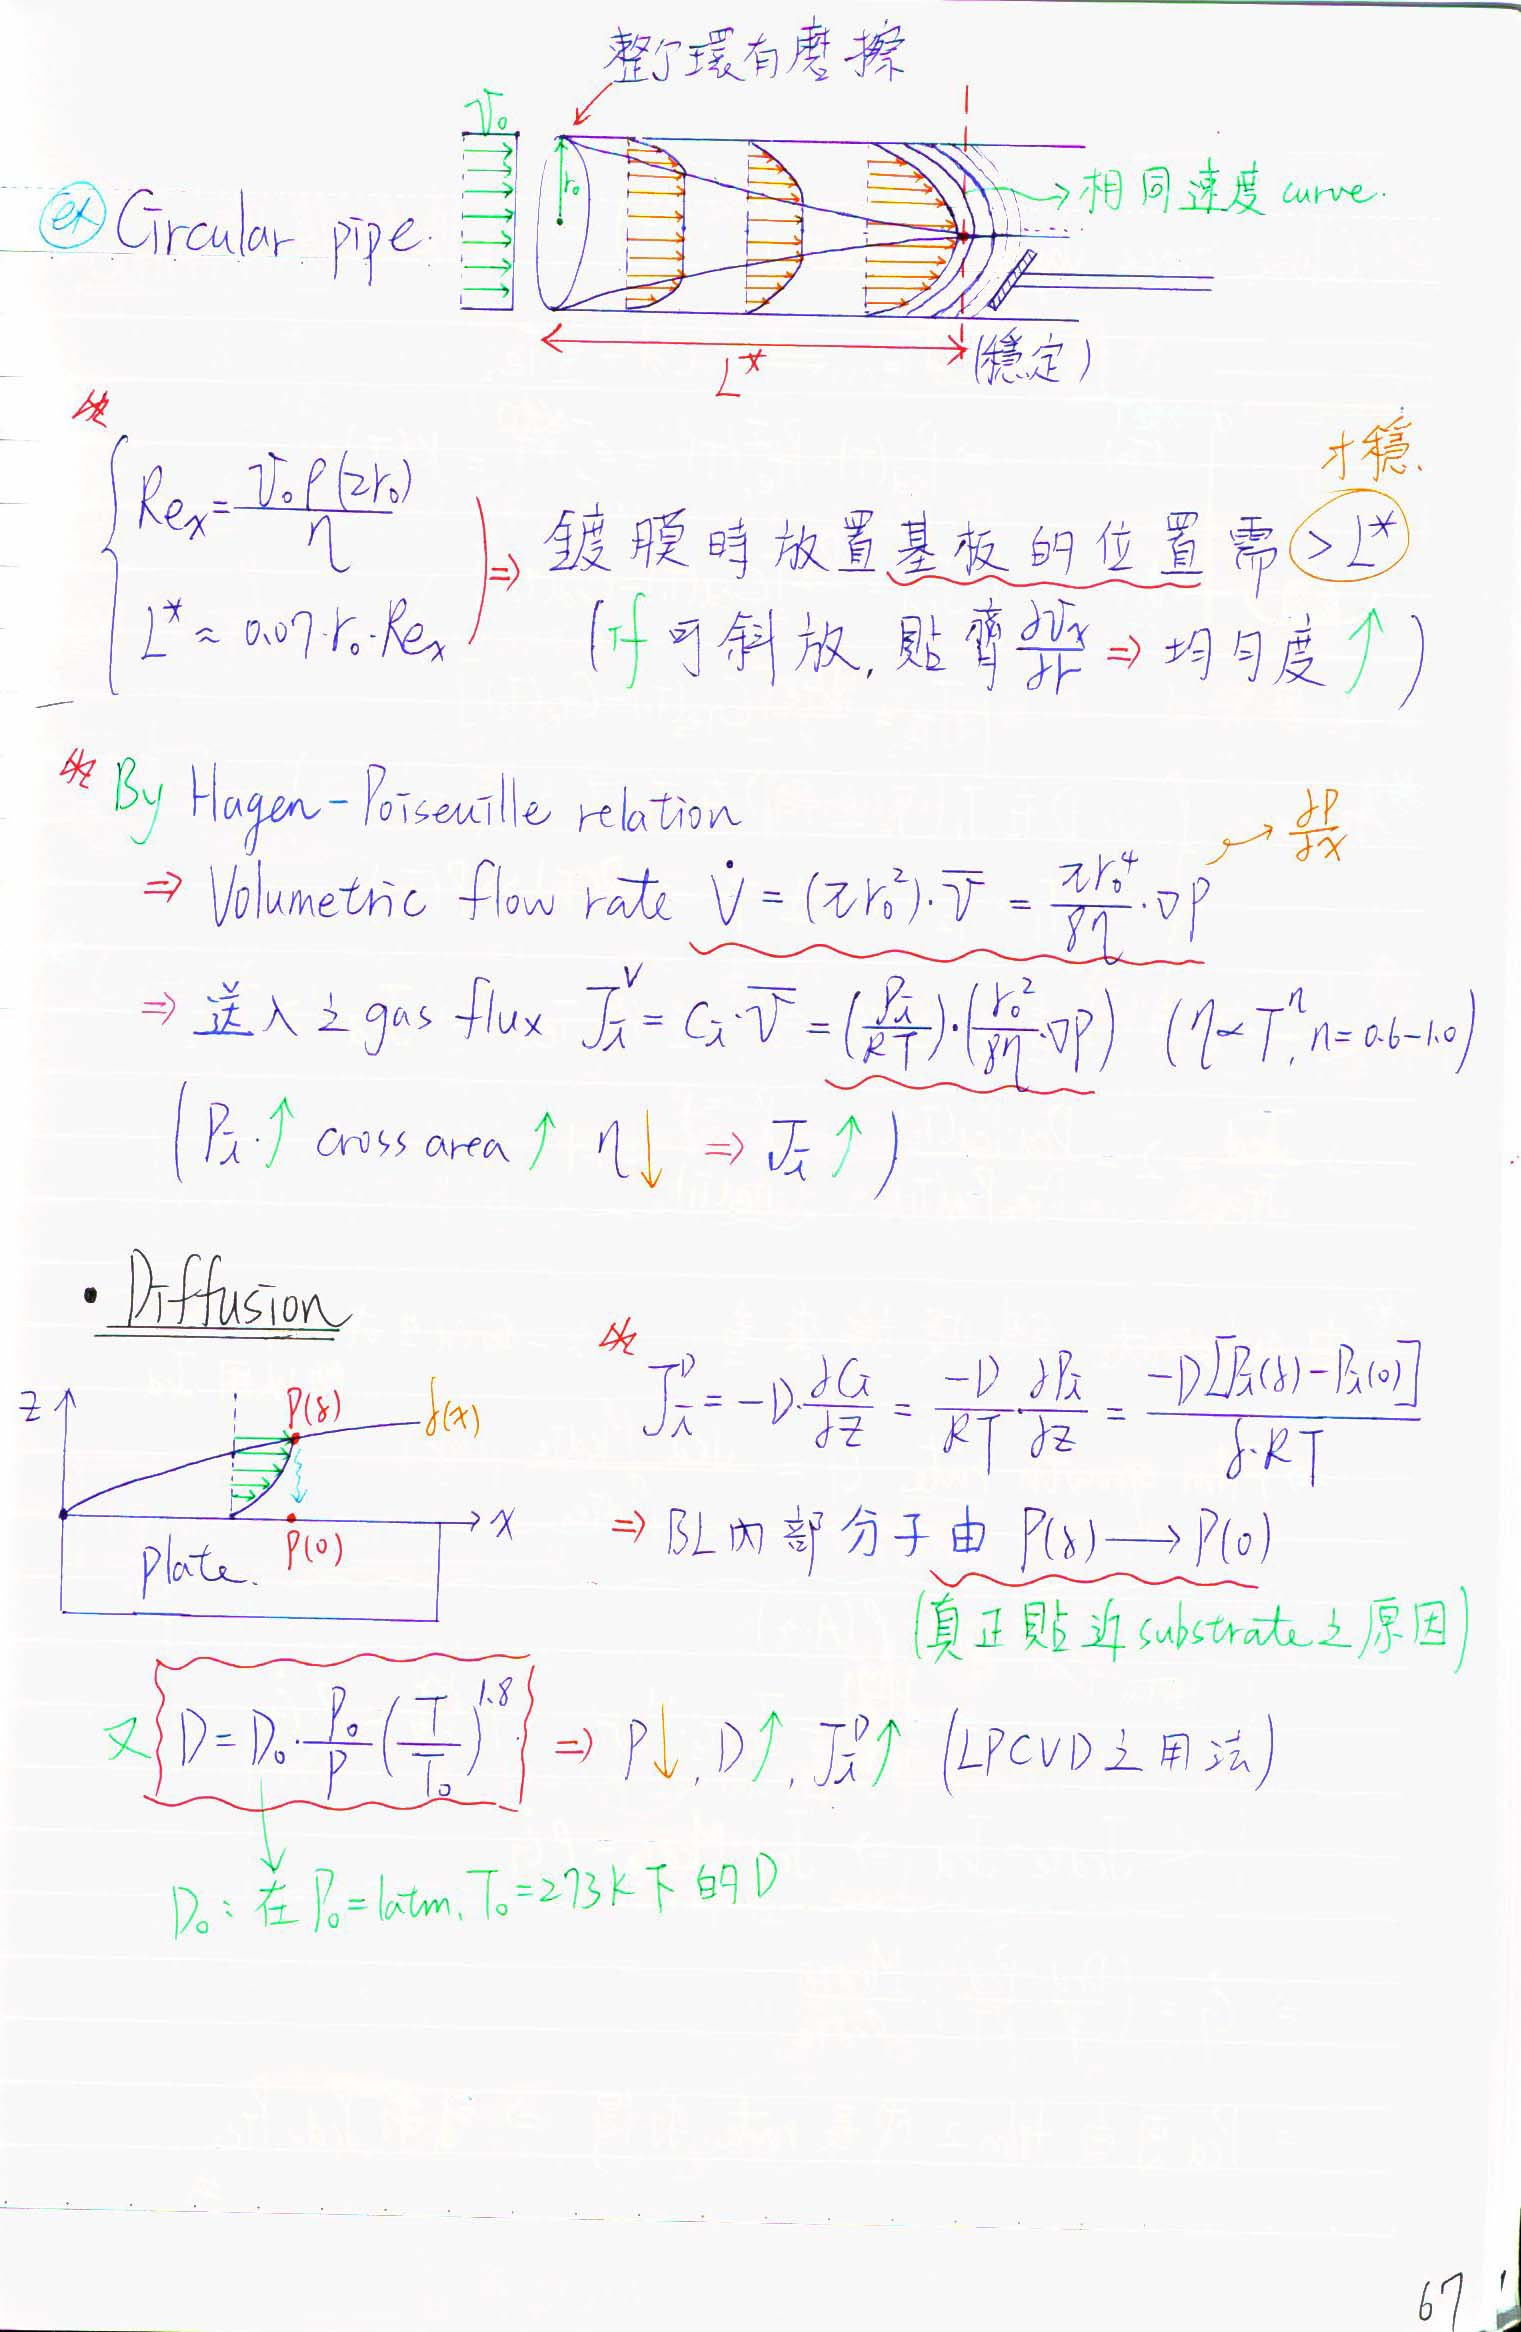 整个環有磨擦
V₀
r₀
→ 相同速度 curve.
ex Circular pipe.
L*
(穩定)
Reₓ = V₀ρ(2r₀)/η
L* ≈ 0.07·r₀·Reₓ
⇒ 鍍膜時放置基板的位置需 > L*
才穩.
(if 可斜放, 貼齊 ∂Vₓ/∂r ⇒ 均勻度↑)
By Hagen-Poiseuille relation
⇒ Volumetric flow rate V̇ = (πr₀²)·v̄ = πr₀⁴/8η · ∇P → ∂P/∂x
⇒ 送入之 gas flux Jᵢⱽ = Cᵢ·v̄ = (Pᵢ/RT)·(r₀²/8η·∇P) (η∝Tⁿ, n=0.6-1.0)
(Pᵢ.↑ cross area↑ η↓ ⇒ Jᵢ↑)
· Diffusion
z
P(δ)
δ(x)
x
P(0)
plate.
Jᵢᴰ = -D·∂Cᵢ/∂z = -D/RT·∂Pᵢ/∂z = -D[Pᵢ(δ)-Pᵢ(0)]/δ·RT
⇒ BL內部分子由 P(δ) → P(0)
(真正貼近 substrate 之原因)
又 D = D₀·P₀/P (T/T₀)^1.8 ⇒ P↓, D↑, Jᵢᴰ↑ (LPCVD之用法)
D₀: 在 P₀=1atm, T₀=273K下的D
67